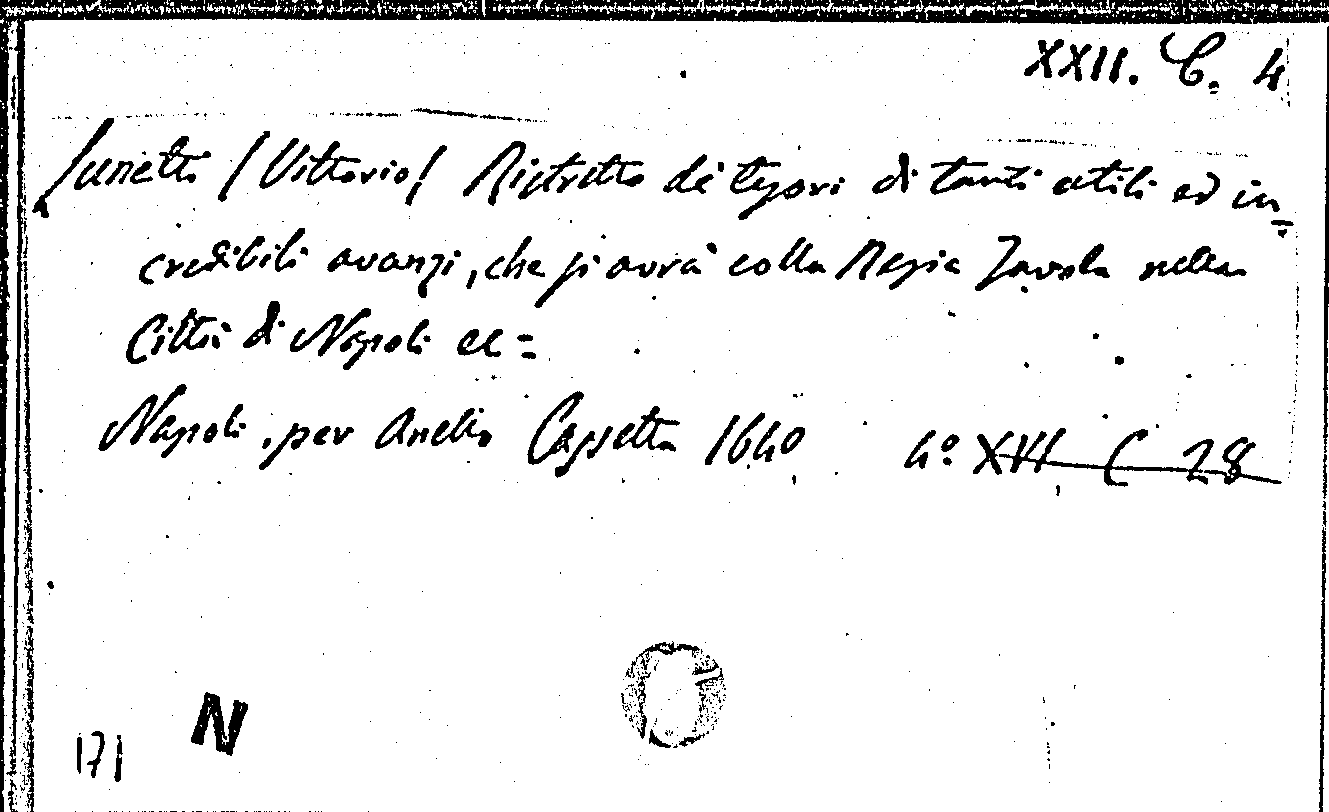 XXII. C. 4
Lunetti (Vittorio) Ristretto de' tesori di tanti utili ed in=
credibili avanzi, che si avrà colla Regia Tavola nella
Città di Napoli ec=
Napoli, per Anello Cassetta 1640 4º. XVI C 28
N
171